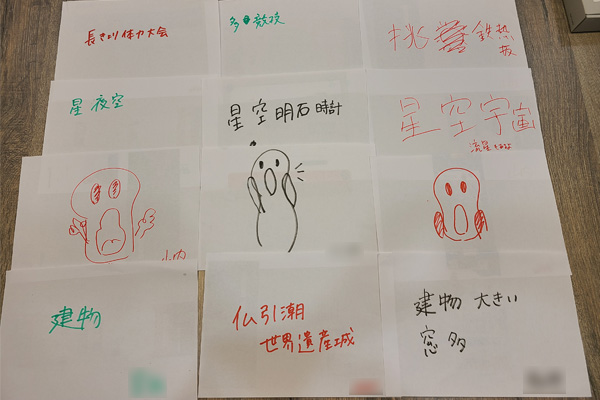 長きより体力大会
多 敵攻
挑 鉄熱
板
星 夜空
星空 明石時計
星空宇宙
流星
小内
建物
仏引潮
世界遺産城
建物 大きい
窓 多